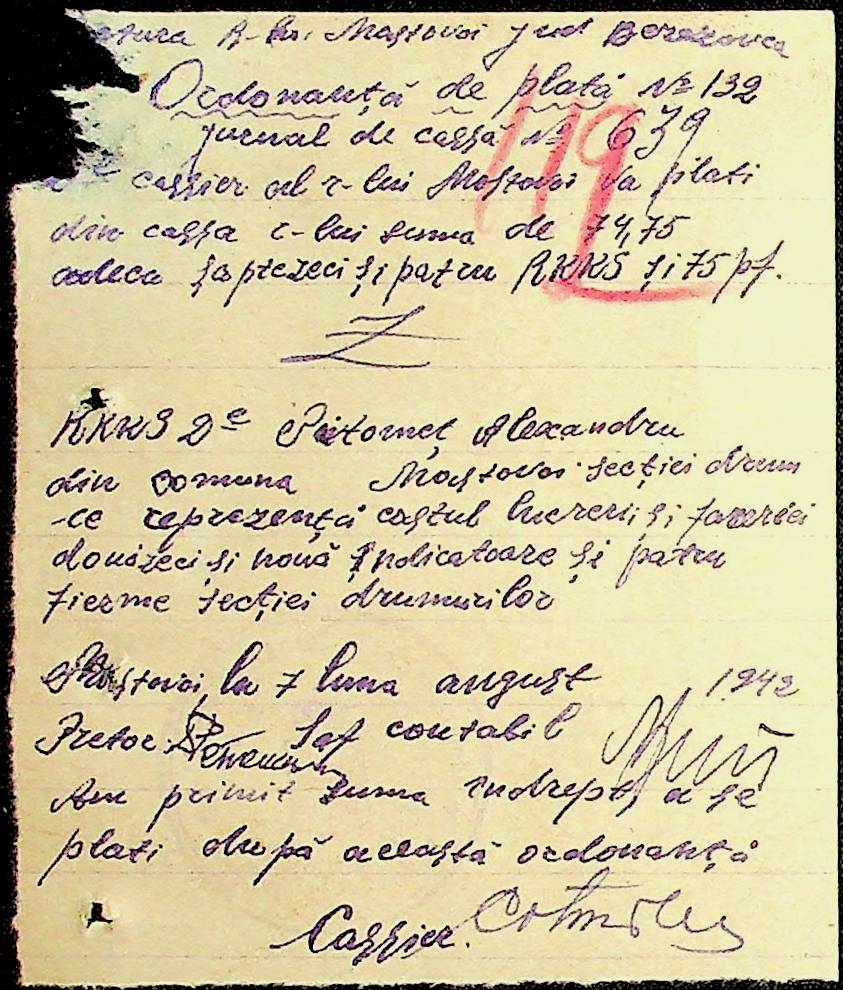 tura R-lui Mostovoi jud Berezovca
Ordonanță de plată № 132
jurnal de cassă № 639
119
cassier al r-lui Mostovoi va plati
din cassa r-lui suma de 74,75
adeca șaptezeci și patru RKKS și 75 pf.
RKKS De Alexandru
din comuna Mostovoi secției drum
-ce reprezență costul lucrerii și
douăzeci și nouă indicatoare și patru
fierme secției drumurilor
Mostovoi, la 7 luna august 1942
Pretor Șef contabil
Am primit suma indrept a se
plati după această ordonanță
Cassier.